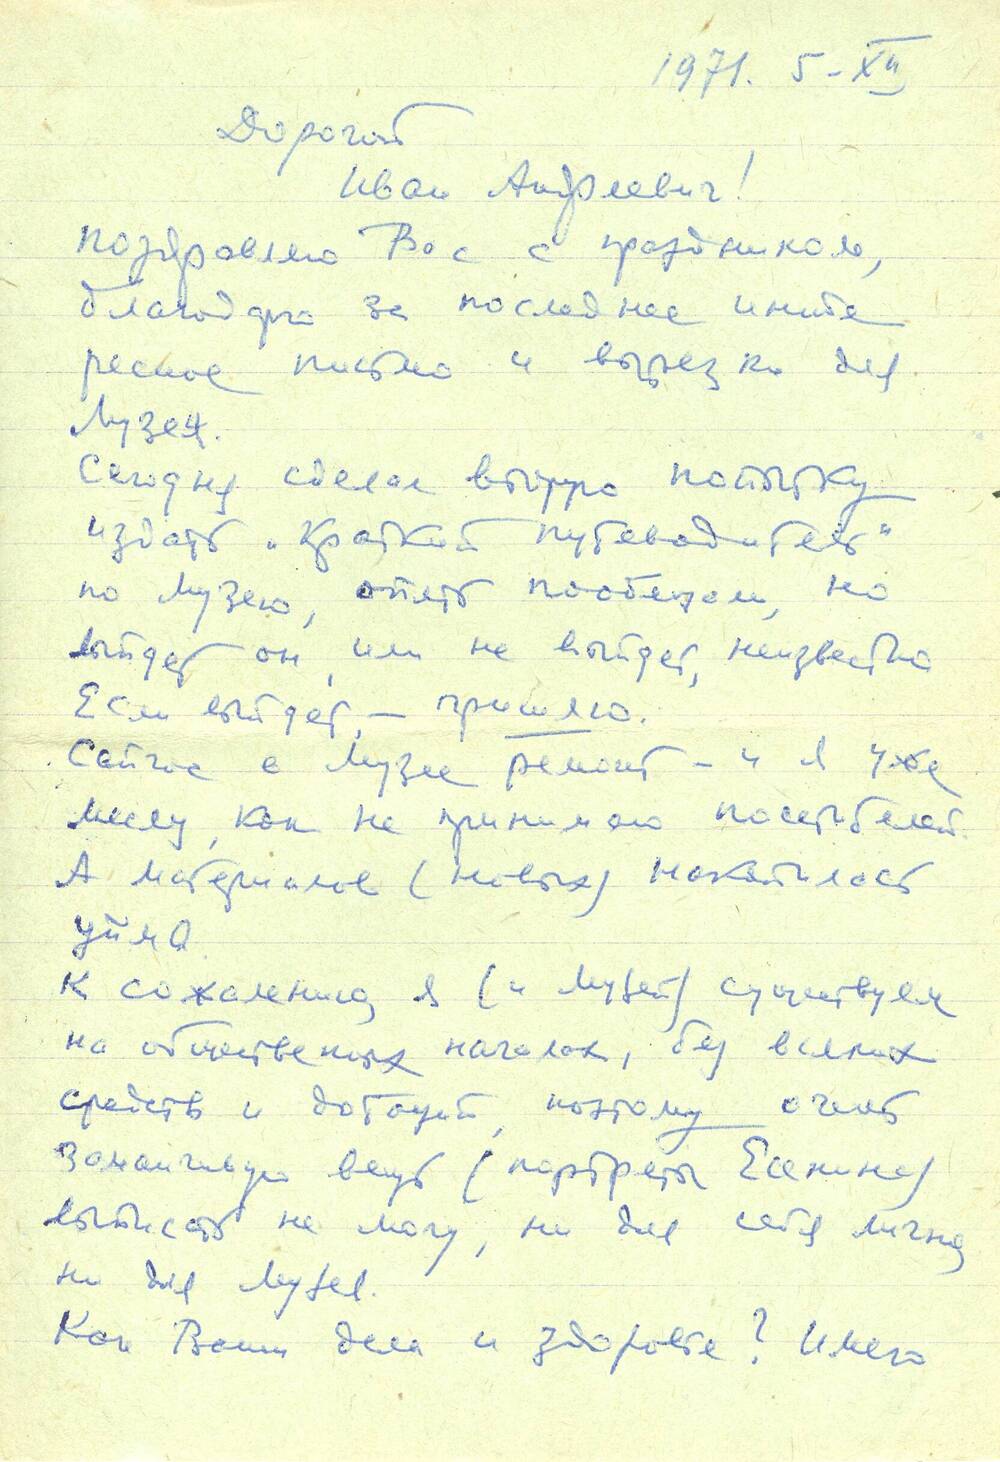 1971. 5-XII
Дорогой
Иван Андреевич!
Поздравляю Вас с праздником,
благодарю за последнее инте
ресное письмо и вырезки для
Музея.
Сегодня сделал вторую попытку
издать „Краткий путеводитель"
по Музею, опять пообещали, но
выйдет он, или не выйдет, неизвестно
Если выйдет, – пришлю.
Сейчас в Музее ремонт – и я уже
месяц, как не принимаю посетителей.
А материалов (новых) накопилось
уйма.
К сожалению, я (и Музей) существуем
на общественных началах, без всяких
средств и дотаций, поэтому очень
заманчивую вещь (портреты Есенина)
выписать не могу, ни для себя лично,
ни для Музея.
Как Ваши дела и здоровье? Имею